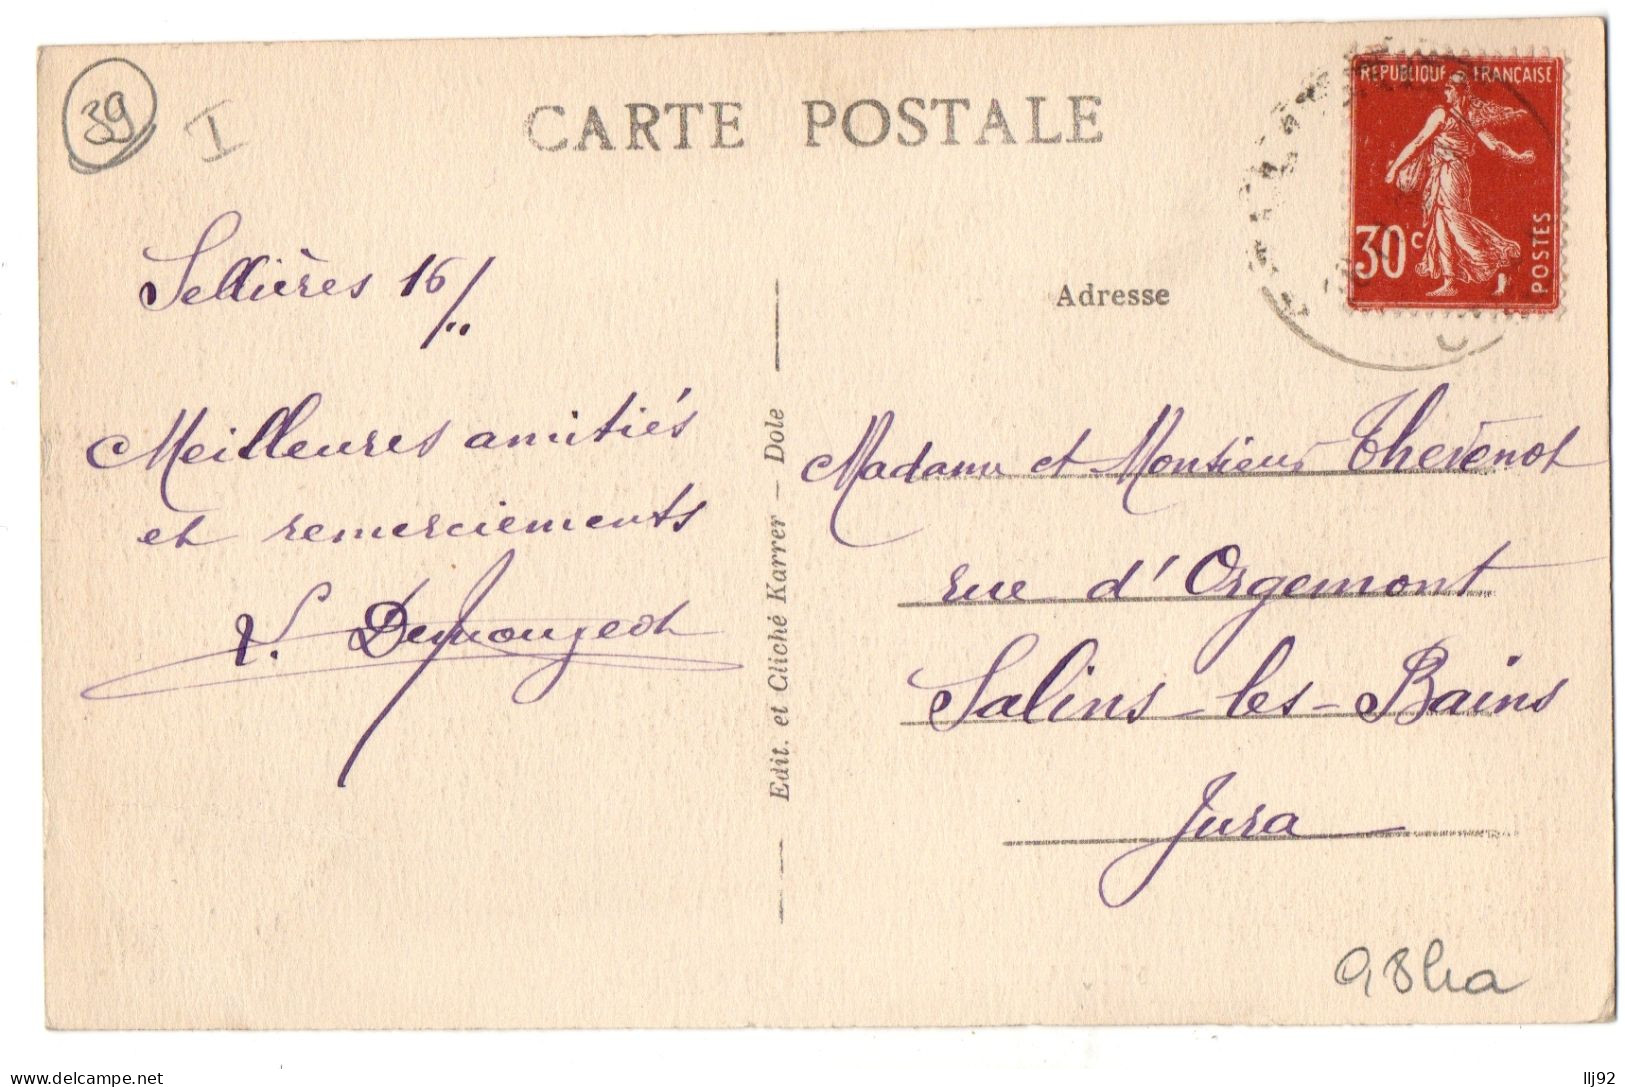 39
I
CARTE POSTALE
REPUBLIQUE FRANÇAISE
30c
POSTES
Sellières 16/..
Meilleures amitiés
et remerciements
Demougeot
Edit. et Cliché Karrer — Dole
Adresse
Madame et Monsieur Thevenot
rue d'Orgemont
Salins-les-Bains
Jura
delcampe.net
llj92